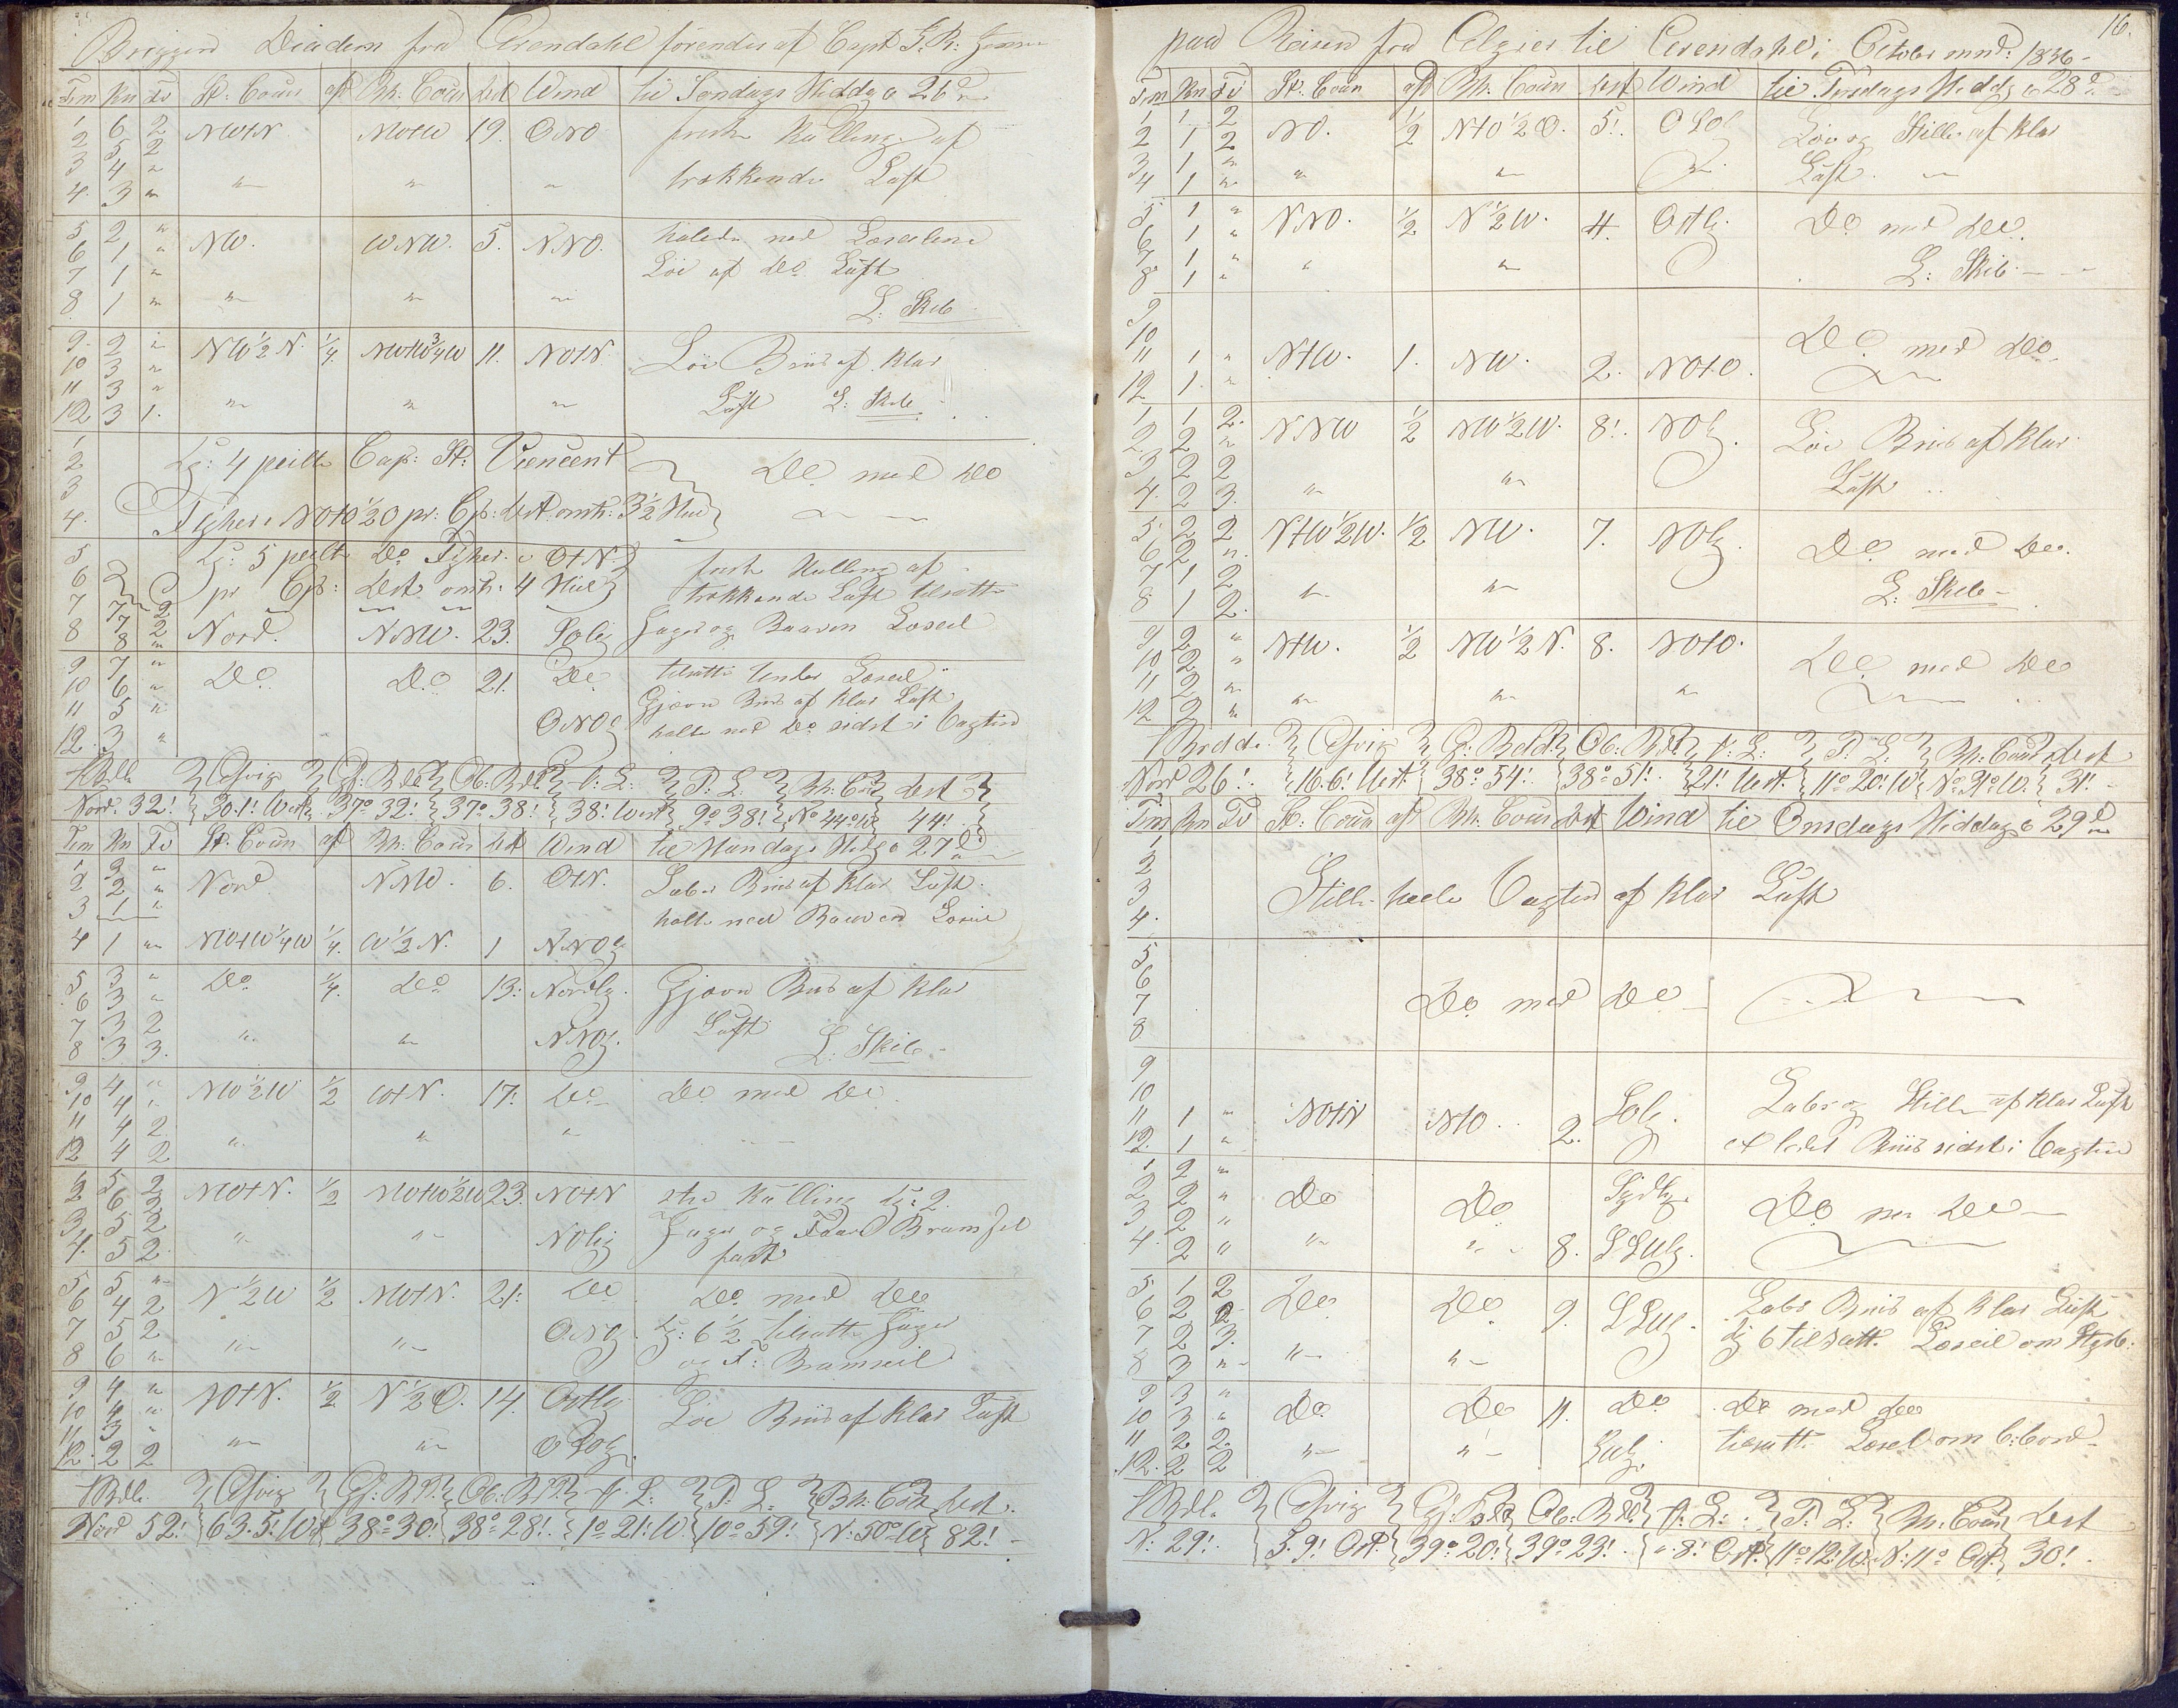 Briggen Diadem fra Arendahl förendes af Capt
Tm Kn Fv St: Cours afd Bh: Cours dist Wind til Söndags Middag d 26
1 6 2 NWtN NWtW 19. ONO frisk Kulling af
2 5 2
3 4 "
4. 3 " " " " trækkende Luft
5 2 " NW. WNW. 5. NNO. halede ned Læseilene
6 1 " Löi af do Luft
7 1 "
8 1 " " " " L: Skib
9. 2 " NW½N. ¼. NWtW¾W 11. NOtN. Löi Briis af klar
10 3 "
11 3 "
12 3 1. " " " Luft L: Skib
1
2 Kl: 4 peilte Cap: St: Vincent Do med do
3
4. Tyher i NOtO½O pr: Cp: dist omtr: 3½ Miil
5 Kl: 5 peilte do Tyher i OtN. frisk Kulling af
6 pr Cp: dist omtr. 4 Miil trækkende Luft tilsatte
7 7 2
8 8 2 Nord. NNW. 23. Solig Jager og Læseil
9 7 " Do. Do 21. Do tilsatte under Læseil
10 6 " Gjævn Briis af klar Luft
11 5 " ONO halte ned do sidst i Vagten
12. 3 "
fBdde Afvig Gj: Bd Ob: Bd f: L: P: L: Bh: Cours dist
Nord. 32! 30.1! West 37° 32! 37° 38! 38! West 9° 38! No 44° W 44!
Tm Kn Fv St: Cours afd Bh: Cours dist Wind til Mandags Midg d 27
1 3 "
2 2 " Nord NNW. 6. OtN. Laber Briis af klar Luft
3 1 " halte ned Læseil
4 1 " NWtW¼W ¼. W½N. 1 NNO
5 3 " Do ¼. do 13: Nordlg. Gjævn Briis af klar
6 3 "
7 3 2 Luft
8 3 3. " " NNO. L: Skib
9 4 " NW½W ½ WtN. 17. do Do med do
10 4 "
11 4 2
12 4 2 " " "
1 5 2 NWtN. ½ NWtW½W 23. NOtN stiv Kulling Kl: 2
2 6 2
3 5 2 " " NOlig Jager og Bramseil
4. 5 2 fast
5 5 " N½W ½ NWtN. 21: do do med do
6 4 2
7 5 2 " " ONO Kl: 6½ tilsatte Jager
8 6 " og F: Bramseil
9 4 " NOtN. ½ N½O. 14. Ostlg Löi Briis af klar Luft
10 4 "
11 3 "
12. 2 2 " " OSOlg
fBdde Afvig Gj: Bd Ob: Bd f: L: P: L: Bh: Cours dist.
Nord 52! 63.5! West 38° 30! 38° 28! 1° 21! W. 10° 59! N: 50° W 82!
16.
paa Reisen fra Algier til Arendahl i October mnd: 1836
Tm Kn Fv St: Cours afd Bh: Cours dist Wind til Tirsdags Middg d 28
1 1 2
2 1 2 NO. ½ NtO½O. 5!. OSO Löi og Stille af klar
3 1 "
4 1 " " " " Luft
5 1 " NNO. ½ N½W. 4. Ostlg. Do med do.
6 1 "
7 1 "
8 1 " " " L: Skib
9
10
11 1 " NtW. 1. NW. 2. NOtO. Do med do
12 1. "
1 1 2. NNW ½ NW½W. 8!. NOlg. Löi Briis af klar
2 2 "
3 2 2
4. 2 3. " " Luft
5. 2 2 NtW½W. ½ NW. 7. NOlg. Do med do.
6 2 "
7 1 2
8 1 2. " " L: Skib
9 2 " NtW. ½ NW½N. 8. NOtO. Do med do
10 2 "
11 2 "
12 2 " " " "
fBredde. Afvig G: Bdd Ob: Bdd f: L: P: L: Bh: Cours dist
Nord 26!. 16.6! West. 38° 54! 38° 51!. 21! West. 11° 20! W No 31° W. 31!.
Tm Kn Fv St: Cours afd Bh: Cours dist Wind til Onsdags Middag d 29
1
2
3 Stille hele Vagten af klar Luft
4.
5
6
7 Do med do
8
9
10
11 1 " NOtN NtO. 2. Solg. Laber og Stille af klar Luft
12. 1 " Briis sidst i Vagten
1 2 "
2 2 " Do Do Sydlg. Do med do
3 2 "
4. 2 " " " 8. SSWlg.
5 1 2 Do Do 9. SSWlg. Laber Briis af klar Luft
6 2 2
7 2 3. Kl 6 tilsatt. Læseil om Styrb:
8 3 " " "
9 3 " Do Do 11. Do Do med do
10 3 "
11 2 2. " " SWlg. tilsatt. Læseil om B:bord
12. 2 2
fBdde. Afvig Gj: Bdd Ob: Bdd f: L: P: L: Bh: Cours dist
N: 29!. 5.9! Ost. 39° 20! 39° 23!. " 8! Ost. 11° 12! W. N: 11° Ost. 30!.